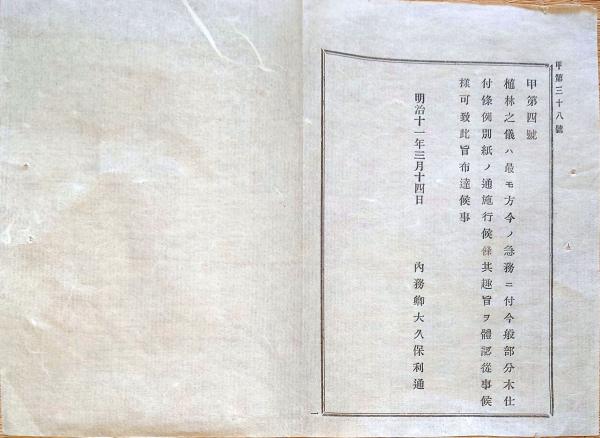 甲第三十八號
甲第四號
植林之儀ハ最モ方今ノ急務ニ付今般部分木仕
付條例別紙ノ通施行候條其趣旨ヲ體認從事候
樣可致此旨布達候事
明治十一年三月十四日
內務卿大久保利通
一